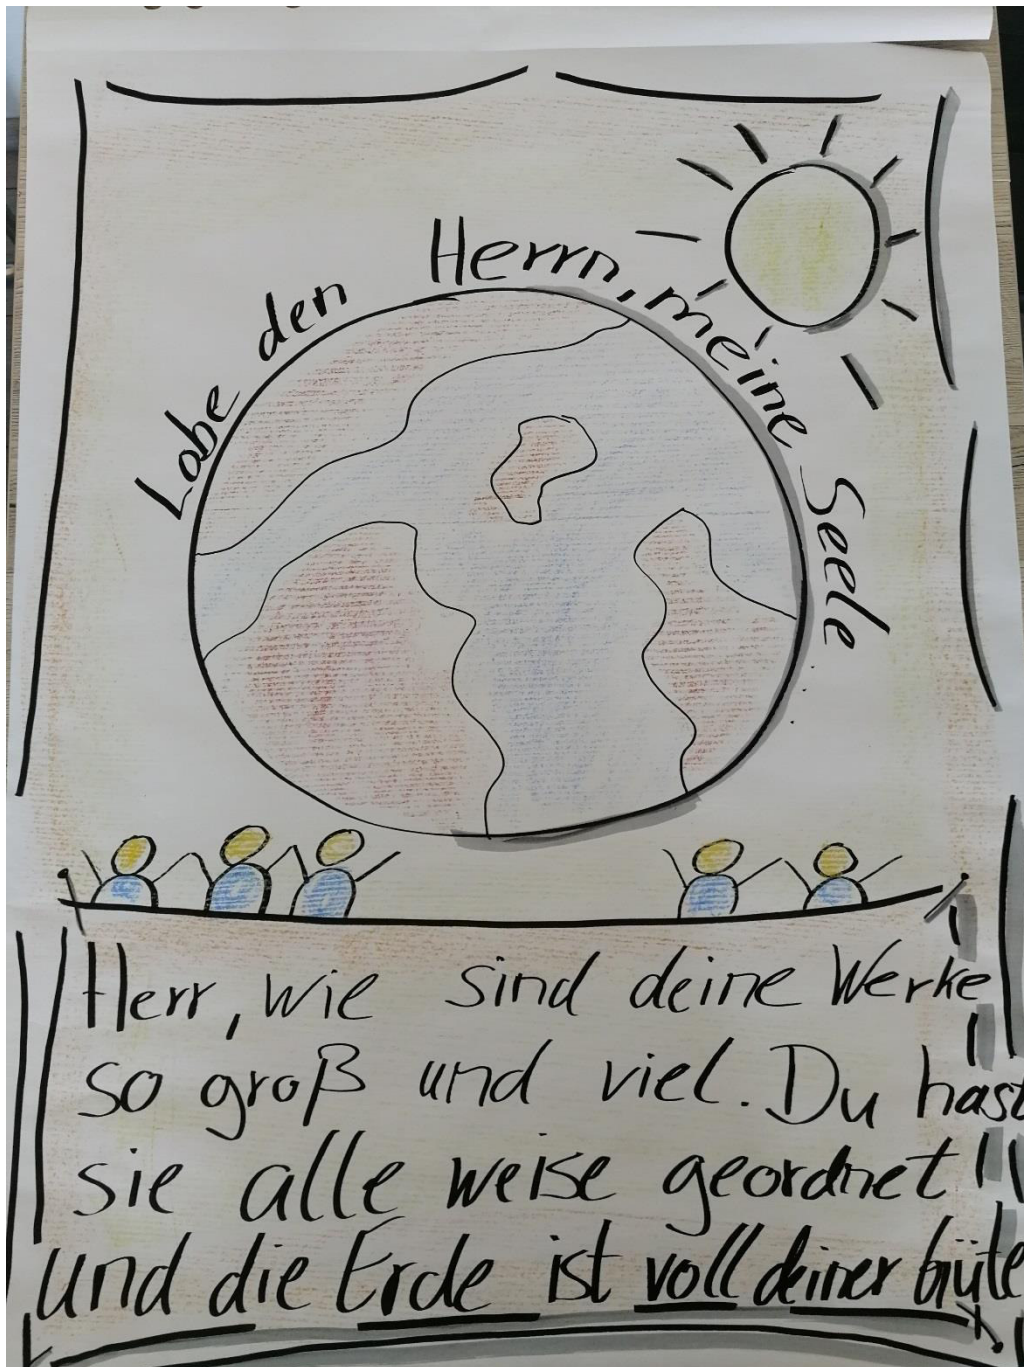 Lobe den Herrn, meine Seele
Herr, wie sind deine Werke
so groß und viel. Du hast
sie alle weise geordnet
und die Erde ist voll deiner Güte